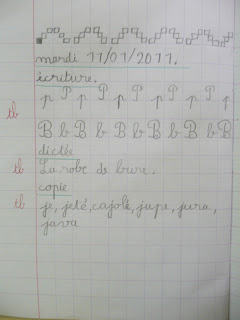 mardi 11/01/2011.
écriture.
p P p P p P p P p P
tb
B b B b B b B b B b B
dictée
tb La robe de bure.
copie
tb je, jeté, cajolé, jupe, jura,
java